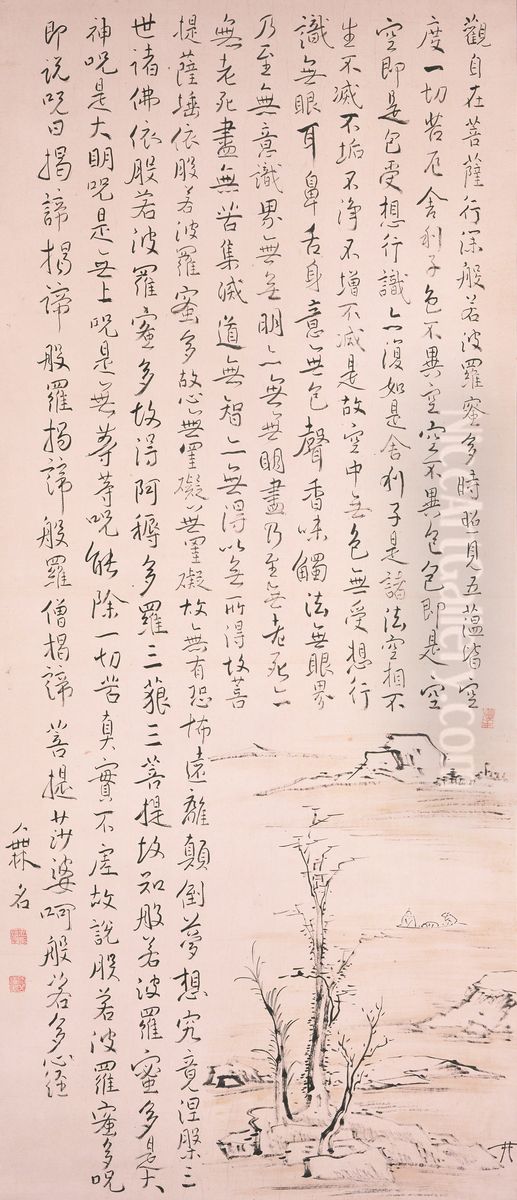 觀自在菩薩行深般若波羅蜜多時照見五蘊皆空
度一切苦厄舍利子色不異空空不異色色即是空
空即是色受想行識亦復如是舍利子是諸法空相不
生不滅不垢不淨不增不減是故空中無色無受想行
識無眼耳鼻舌身意無色聲香味觸法無眼界
乃至無意識界無無明亦無無明盡乃至無老死亦
無老死盡無苦集滅道無智亦無得以無所得故菩
提薩埵依般若波羅蜜多故心無罣礙無罣礙故無有恐怖遠離顛倒夢想究竟涅槃三
世諸佛依般若波羅蜜多故得阿耨多羅三藐三菩提故知般若波羅蜜多是大
神呪是大明呪是無上呪是無等等呪能除一切苦真實不虛故說般若波羅蜜多呪
即說呪曰揭諦揭諦般羅揭諦般羅僧揭諦菩提莎婆呵般若多心經
NiceArtGallery.com